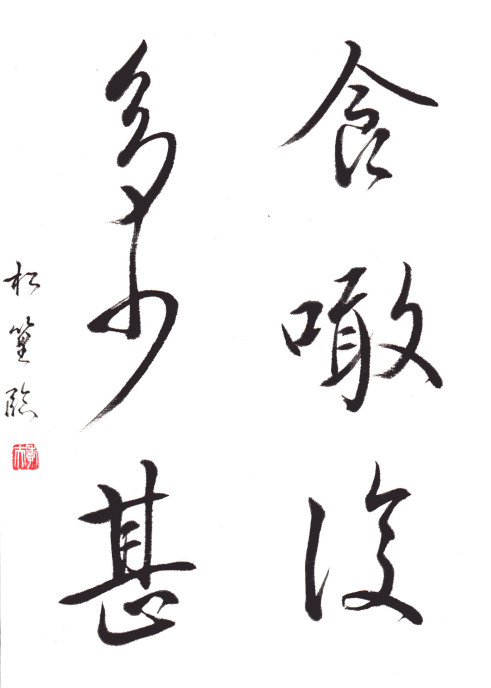 食噉復
多少甚
松篁臨